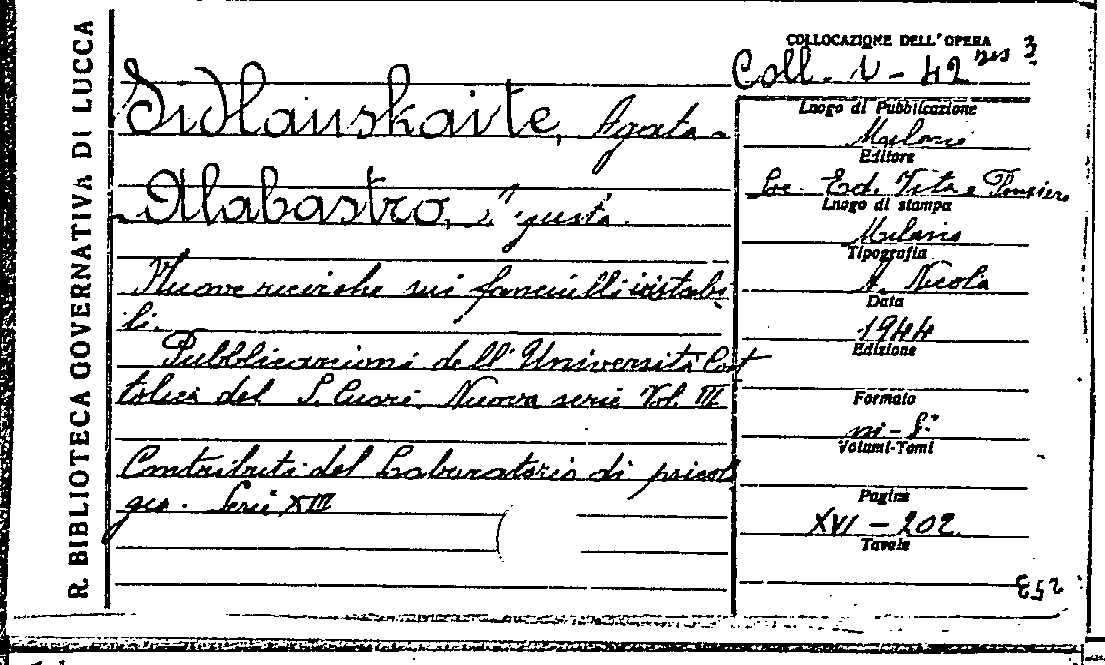 R. BIBLIOTECA GOVERNATIVA DI LUCCA
COLLOCAZIONE DELL'OPERA
Coll. V - 42 3
Sidlauskaite, Agata -
Alabastro,
Nuove ricerche sui fanciulli instabi
li.
Pubblicazioni dell'Università Cat
tolica del S. Cuore. Nuova serie Vol. III
Contributi del Laboratorio di psicolo
gia. Serie XIII
Luogo di Pubblicazione
Milano
Editore
Ed. Vita e Pensiero
Luogo di stampa
Milano
Tipografia
A. Nicola
Data
1944
Edizione
Formato
in-8°
Volumi-Tomi
Pagine
XVI - 202
Tavole